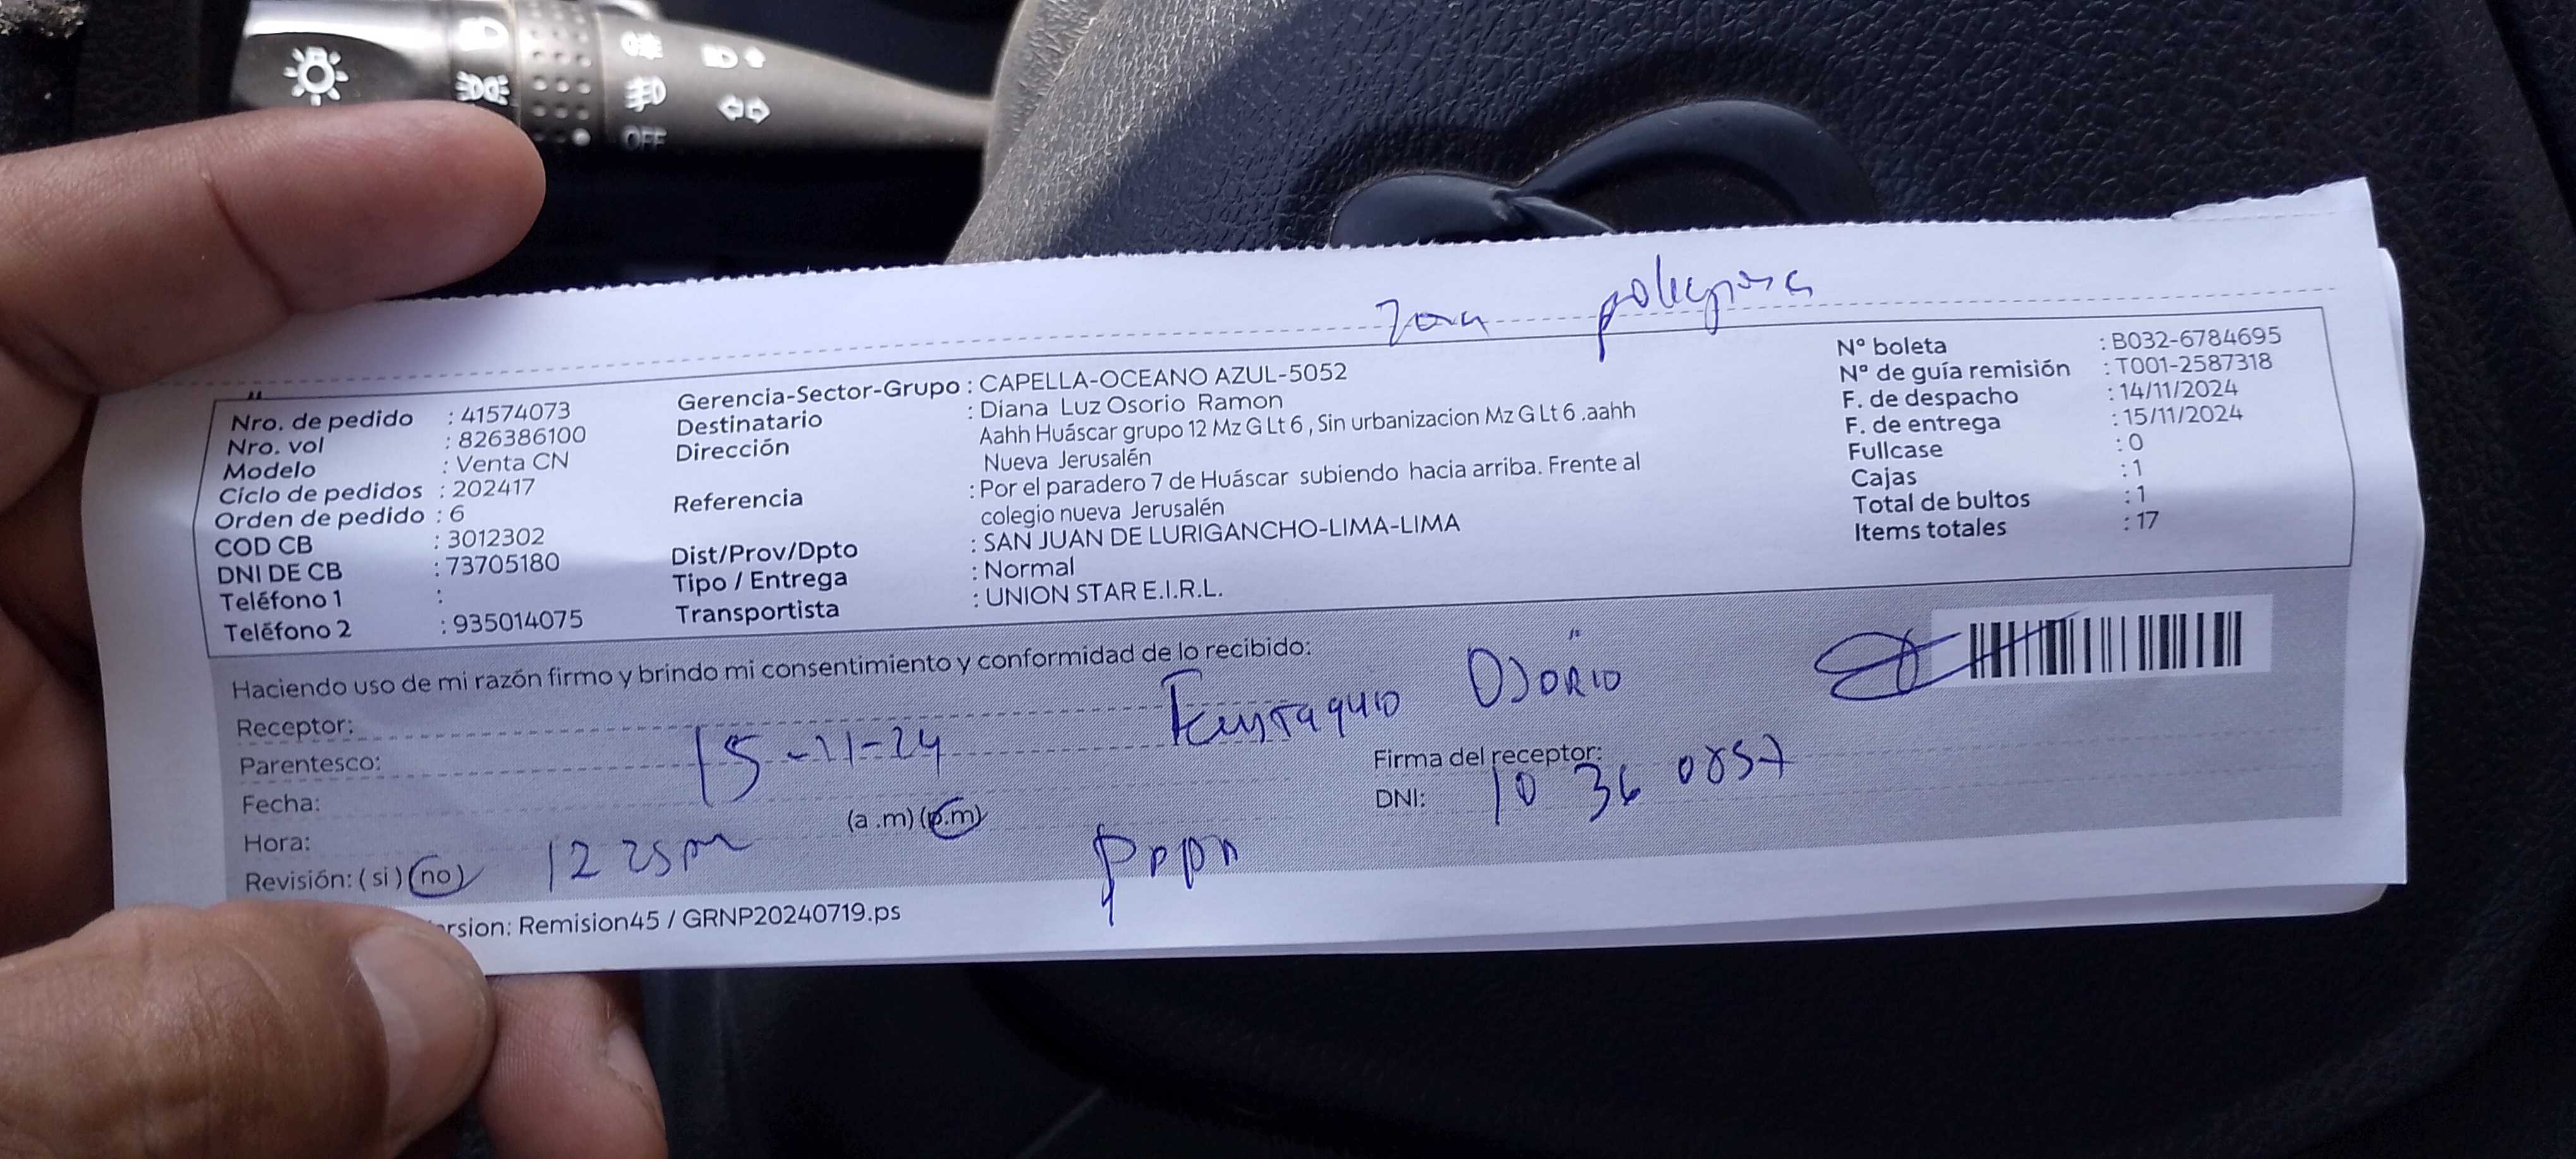 OFF
Zona peligrosa
Nro. de pedido : 41574073
Nro. vol : 826386100
Modelo : Venta CN
Ciclo de pedidos : 202417
Orden de pedido : 6
COD CB : 3012302
DNI DE CB : 73705180
Teléfono 1 :
Teléfono 2 : 935014075
Gerencia-Sector-Grupo : CAPELLA-OCEANO AZUL-5052
Destinatario : Diana Luz Osorio Ramon
Dirección Aahh Huáscar grupo 12 Mz G Lt 6 , Sin urbanizacion Mz G Lt 6 .aahh
Nueva Jerusalén
Referencia : Por el paradero 7 de Huáscar subiendo hacia arriba. Frente al
colegio nueva Jerusalén
Dist/Prov/Dpto : SAN JUAN DE LURIGANCHO-LIMA-LIMA
Tipo / Entrega : Normal
Transportista : UNION STAR E.I.R.L.
N° boleta : B032-6784695
N° de guía remisión : T001-2587318
F. de despacho : 14/11/2024
F. de entrega : 15/11/2024
Fullcase : 0
Cajas : 1
Total de bultos : 1
Items totales : 17
Haciendo uso de mi razón firmo y brindo mi consentimiento y conformidad de lo recibido:
Receptor: Eustaquio Osorio
Parentesco:
Fecha: 15-11-24
Hora: (a.m) (p.m)
Revisión: ( si ) (no) 12 25 pm
Firma del receptor:
DNI: 10 36 0857
papa
rsion: Remision45 / GRNP20240719.ps